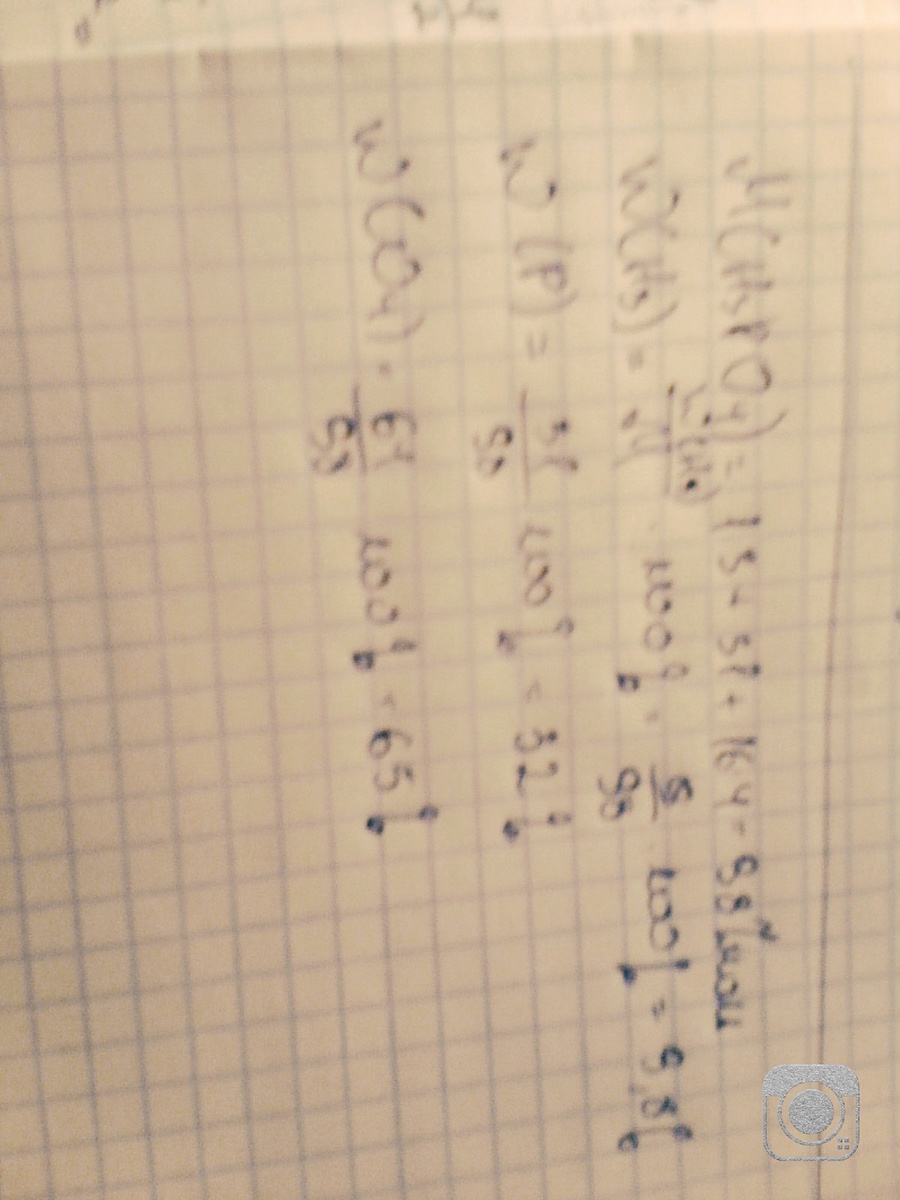 M(H₃PO₄) = 1·3 + 31 + 16·4 = 98 г/моль
W(H₃) = (H₃)/M · 100% = /98 · 100% = 9,8%
W(P) = 31/98 · 100% = 32%
W(O₄) = 64/98 · 100% = 65%